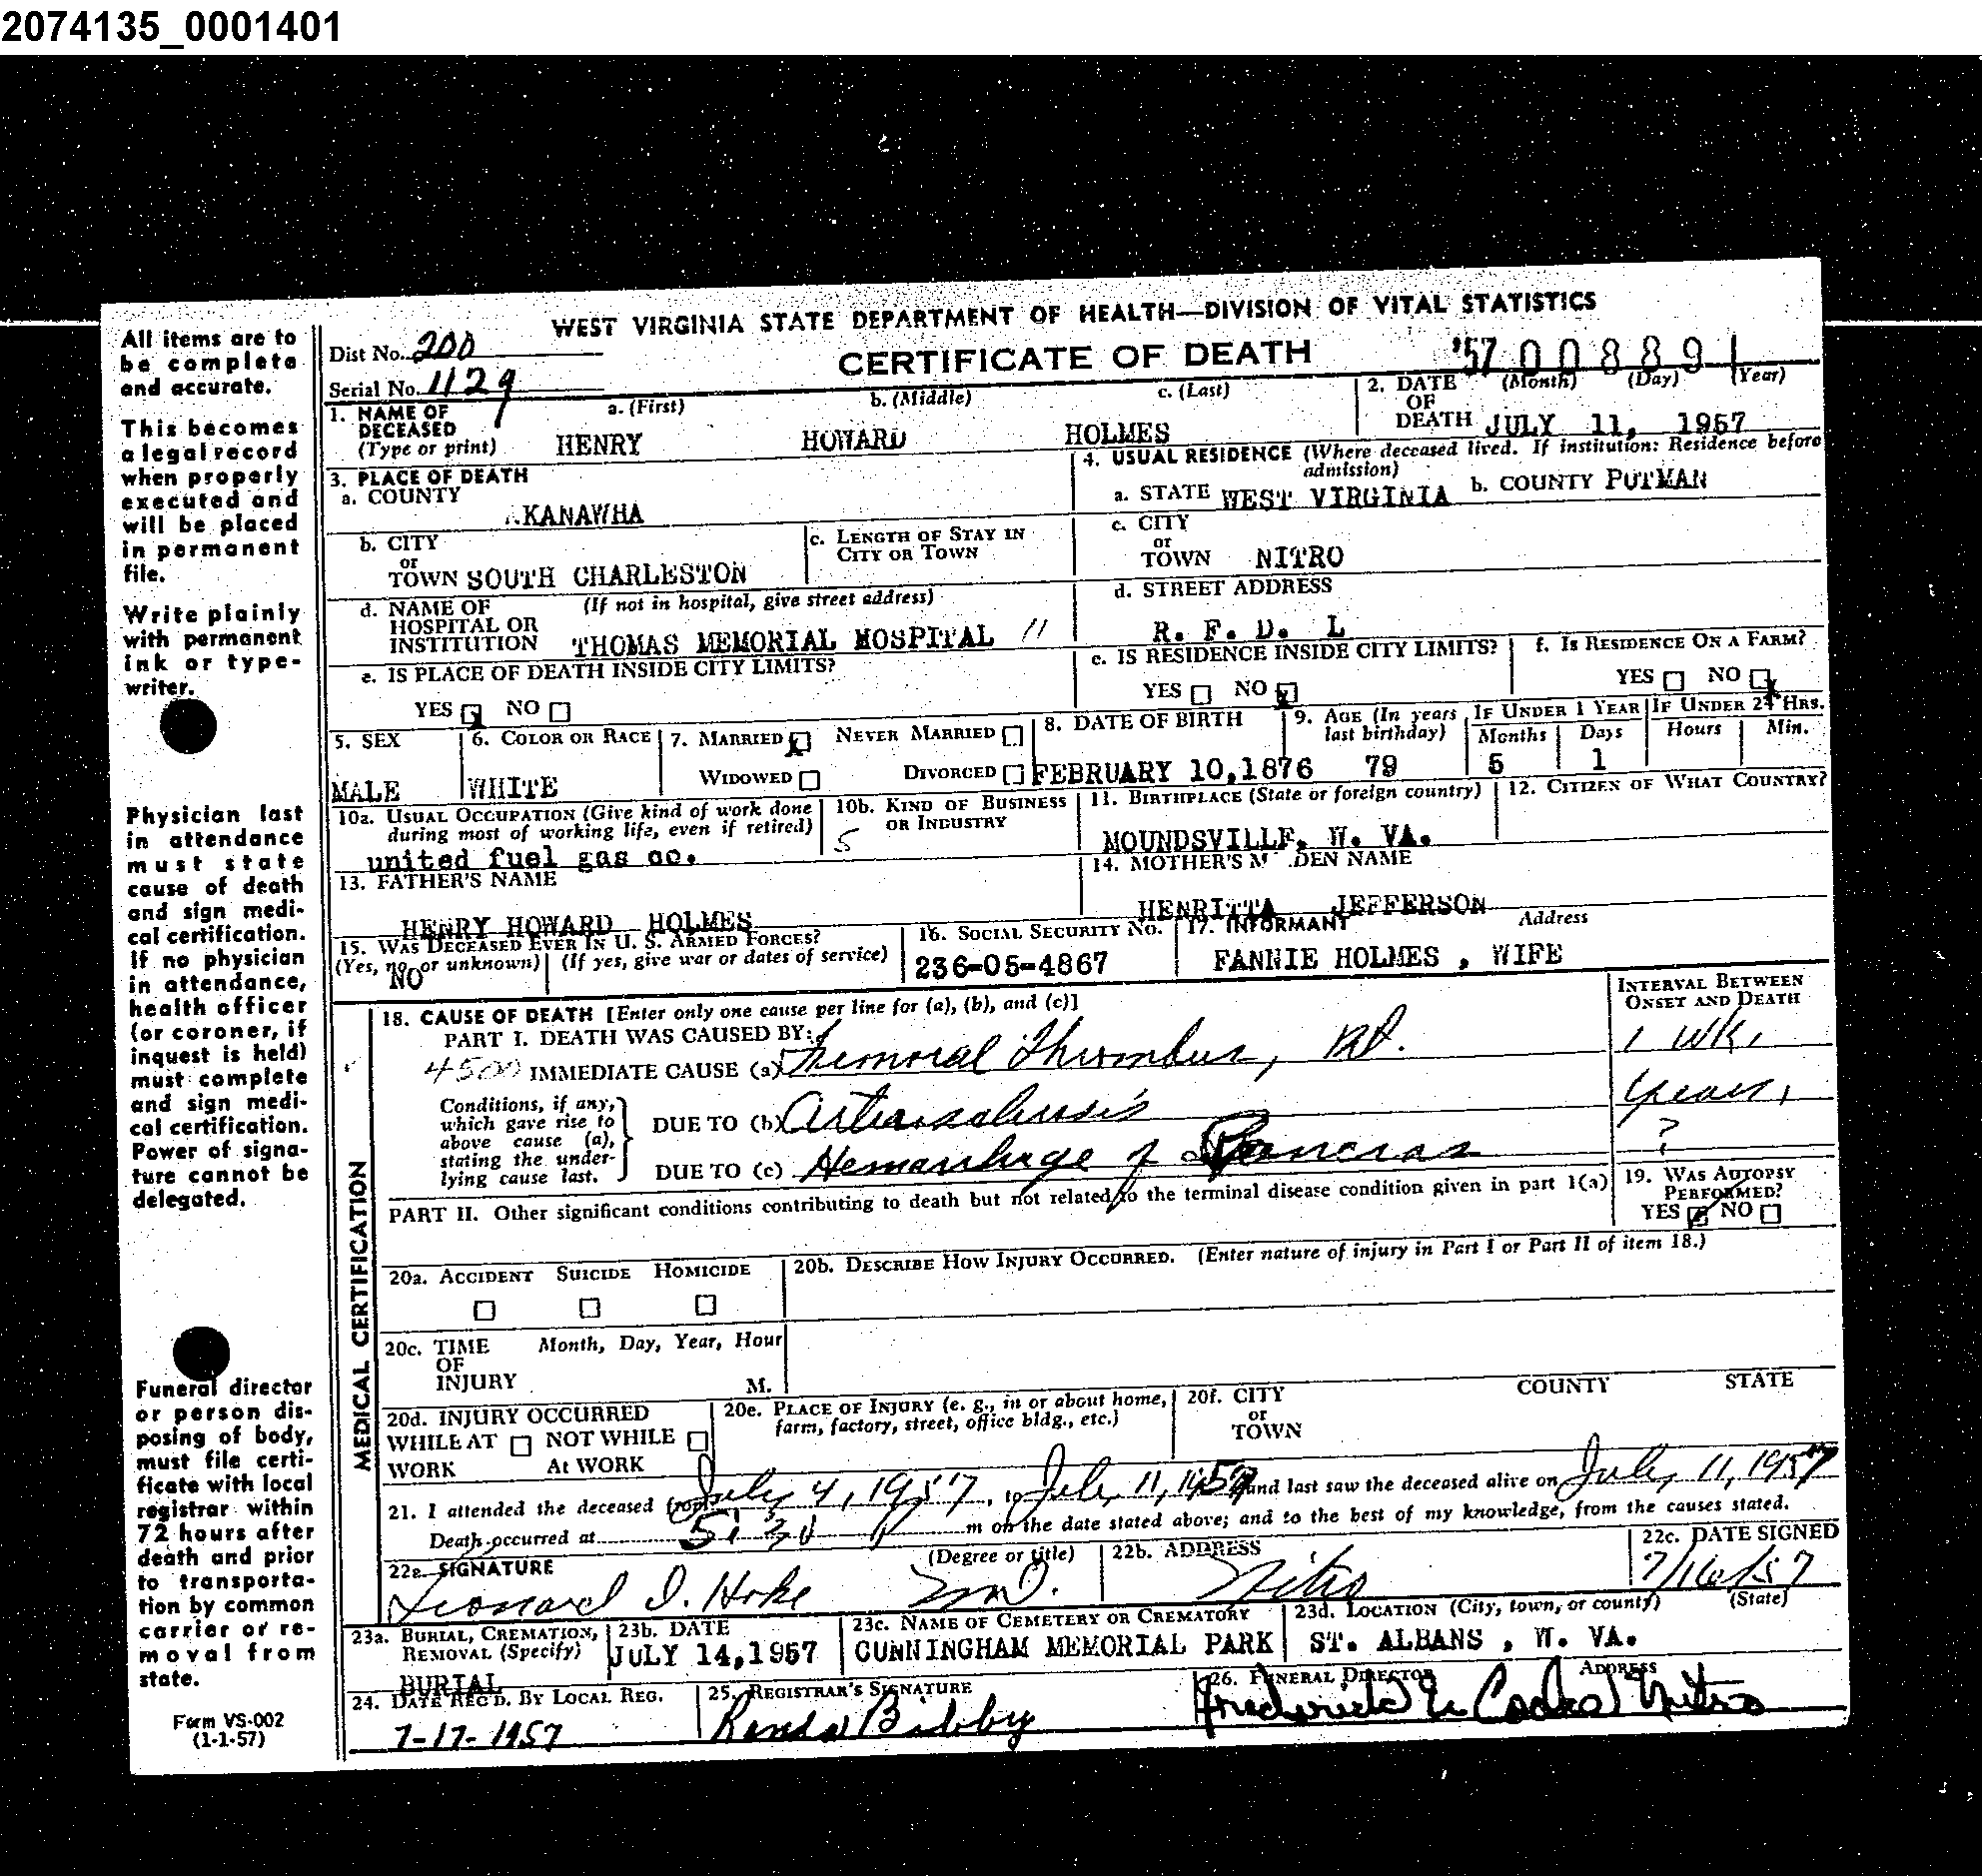 2074135_0001401
WEST VIRGINIA STATE DEPARTMENT OF HEALTH—DIVISION OF VITAL STATISTICS
Dist No. 200
CERTIFICATE OF DEATH
'57 008891
Serial No. 1129
1. NAME OF DECEASED (Type or print)
a. (First) b. (Middle) c. (Last)
HENRY HOWARD HOLMES
2. DATE OF DEATH (Month) (Day) (Year)
JULY 11, 1957
3. PLACE OF DEATH
a. COUNTY
KANAWHA
4. USUAL RESIDENCE (Where deceased lived. If institution: Residence before admission)
a. STATE WEST VIRGINIA b. COUNTY PUTMAN
b. CITY or TOWN SOUTH CHARLESTON
c. LENGTH OF STAY IN CITY OR TOWN
c. CITY or TOWN NITRO
d. NAME OF HOSPITAL OR INSTITUTION (If not in hospital, give street address)
THOMAS MEMORIAL HOSPITAL 11
d. STREET ADDRESS
R. F. D. L
e. IS PLACE OF DEATH INSIDE CITY LIMITS?
YES NO
e. IS RESIDENCE INSIDE CITY LIMITS?
YES NO
f. IS RESIDENCE ON A FARM?
YES NO
5. SEX
MALE
6. COLOR OR RACE
WHITE
7. MARRIED NEVER MARRIED
WIDOWED DIVORCED
8. DATE OF BIRTH
FEBRUARY 10,1876
9. AGE (In years last birthday)
79
IF UNDER 1 YEAR
Months Days
5 1
IF UNDER 24 HRS.
Hours Min.
10a. USUAL OCCUPATION (Give kind of work done during most of working life, even if retired)
united fuel gas co.
10b. KIND OF BUSINESS OR INDUSTRY
5
11. BIRTHPLACE (State or foreign country)
MOUNDSVILLE, W. VA.
12. CITIZEN OF WHAT COUNTRY?
13. FATHER'S NAME
HENRY HOWARD HOLMES
14. MOTHER'S M DEN NAME
HENRITTA JEFFERSON
15. WAS DECEASED EVER IN U. S. ARMED FORCES?
(Yes, no, or unknown) (If yes, give war or dates of service)
NO
16. SOCIAL SECURITY NO.
236-05-4867
17. INFORMANT Address
FANNIE HOLMES , WIFE
MEDICAL CERTIFICATION
18. CAUSE OF DEATH [Enter only one cause per line for (a), (b), and (c)]
INTERVAL BETWEEN ONSET AND DEATH
PART I. DEATH WAS CAUSED BY:
4500 IMMEDIATE CAUSE (a) Femoral Thrombus, Rt. 1 wk.
Conditions, if any, which gave rise to above cause (a), stating the underlying cause last.
DUE TO (b) Arteriosclerosis years
DUE TO (c) Hemorrhage of Pancreas ?
PART II. Other significant conditions contributing to death but not related to the terminal disease condition given in part I(a)
19. WAS AUTOPSY PERFORMED?
YES NO
20a. ACCIDENT SUICIDE HOMICIDE
20b. DESCRIBE HOW INJURY OCCURRED. (Enter nature of injury in Part I or Part II of item 18.)
20c. TIME OF INJURY Month, Day, Year, Hour
M.
20d. INJURY OCCURRED
WHILE AT WORK NOT WHILE At WORK
20e. PLACE OF INJURY (e. g., in or about home, farm, factory, street, office bldg., etc.)
20f. CITY or TOWN COUNTY STATE
21. I attended the deceased from July 4, 1957, to July 11, 1957 and last saw the deceased alive on July 11, 1957
Death occurred at m on the date stated above; and to the best of my knowledge, from the causes stated.
22a. SIGNATURE (Degree or title)
Leonard I. Hoke M.D.
22b. ADDRESS
Nitro
22c. DATE SIGNED
7/16/57
23a. BURIAL, CREMATION, REMOVAL (Specify)
BURIAL
23b. DATE
JULY 14,1957
23c. NAME OF CEMETERY OR CREMATORY
CUNNINGHAM MEMORIAL PARK
23d. LOCATION (City, town, or county) (State)
ST. ALBANS , W. VA.
24. DATE REC'D. BY LOCAL REG.
7-17-1957
25. REGISTRAR'S SIGNATURE
Bibby
26. FUNERAL DIRECTOR ADDRESS
Frederick Nitro
All items are to
be complete
and accurate.
This becomes
a legal record
when properly
executed and
will be placed
in permanent
file.
Write plainly
with permanent
ink or type-
writer.
Physician last
in attendance
must state
cause of death
and sign medi-
cal certification.
If no physician
in attendance,
health officer
(or coroner, if
inquest is held)
must complete
and sign medi-
cal certification.
Power of signa-
ture cannot be
delegated.
Funeral director
or person dis-
posing of body,
must file certi-
ficate with local
registrar within
72 hours after
death and prior
to transporta-
tion by common
carrier or re-
moval from
state.
Form VS-002
(1-1-57)